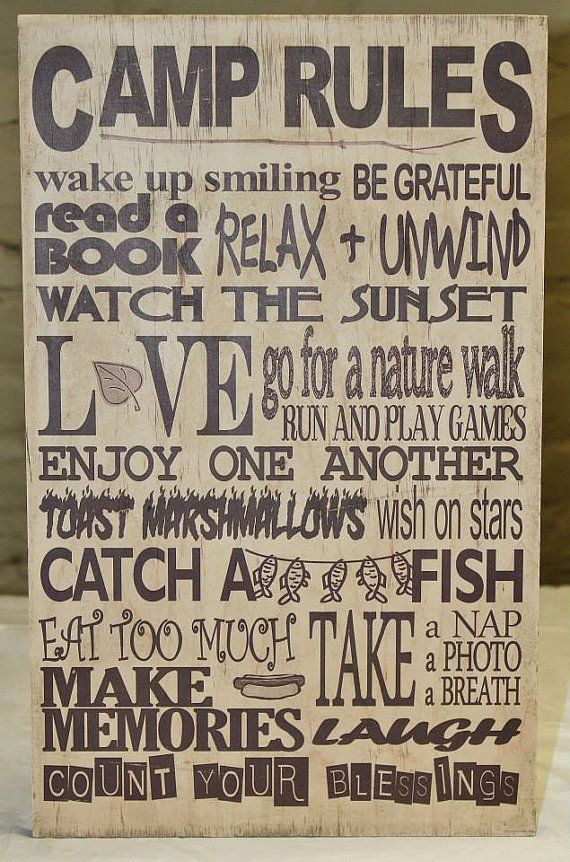 CAMP RULES
wake up smiling BE GRATEFUL
read a BOOK RELAX + UNWIND
WATCH THE SUNSET
LOVE go for a nature walk
RUN AND PLAY GAMES
ENJOY ONE ANOTHER
TOAST MARSHMALLOWS wish on stars
CATCH A FISH
EAT TOO MUCH
TAKE a NAP
a PHOTO
a BREATH
MAKE
MEMORIES LAUGH
COUNT YOUR BLESSINGS